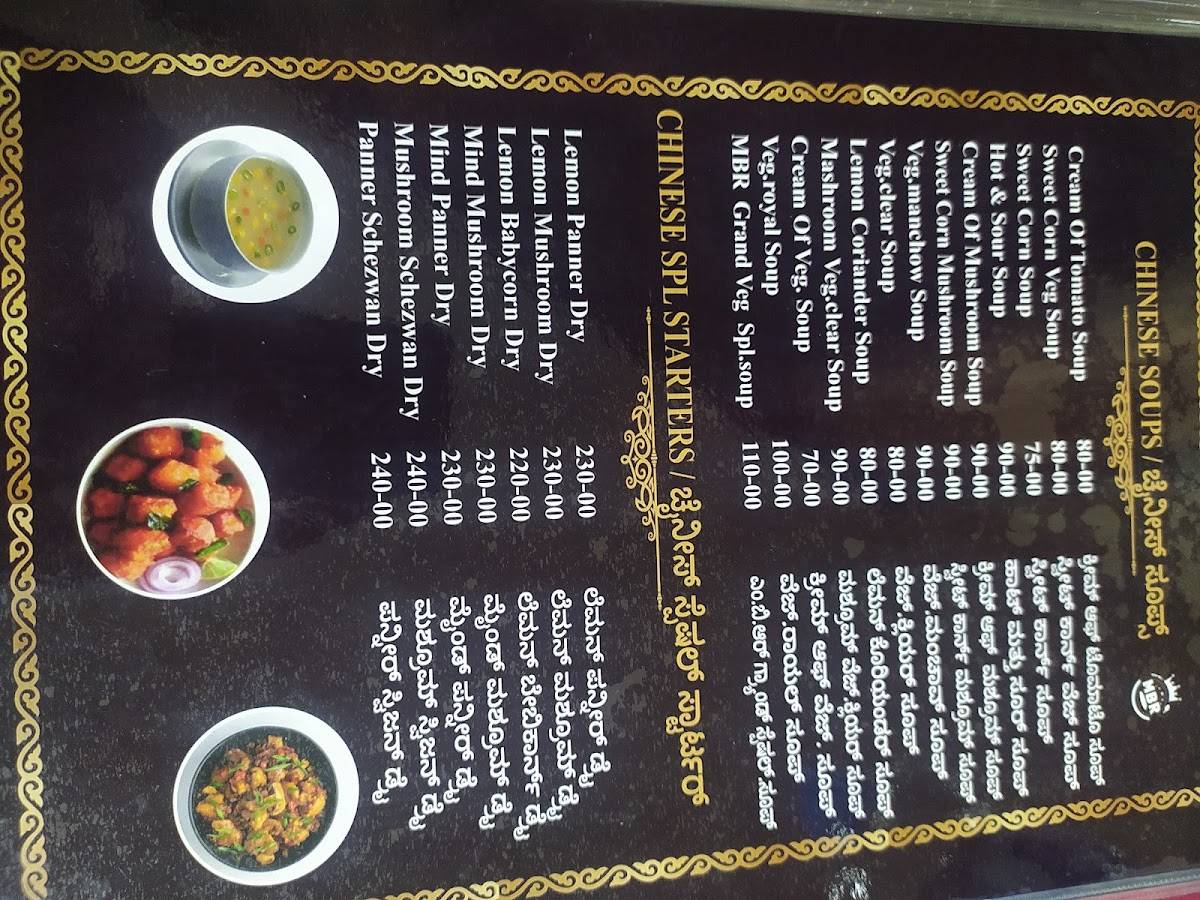 CHINESE SOUPS / ಚೈನೀಸ್ ಸೂಪ್ಸ್
MBR
Cream Of Tomato Soup 80-00 ಕ್ರೀಮ್ ಆಫ್ ಟೊಮಾಟೊ ಸೂಪ್
Sweet Corn Veg Soup 80-00 ಸ್ವೀಟ್ ಕಾರ್ನ್ ವೆಜ್ ಸೂಪ್
Sweet Corn Soup 75-00 ಸ್ವೀಟ್ ಕಾರ್ನ್ ಸೂಪ್
Hot & Sour Soup 90-00 ಹಾಟ್ ಮತ್ತು ಸೂರ್ ಸೂಪ್
Cream Of Mushroom Soup 90-00 ಕ್ರೀಮ್ ಆಫ್ ಮಶ್ರೂಮ್ ಸೂಪ್
Sweet Corn Mushroom Soup 90-00 ಸ್ವೀಟ್ ಕಾರ್ನ್ ಮಶ್ರೂಮ್ ಸೂಪ್
Veg.manchow Soup 90-00 ವೆಜ್ ಮಂಚಾವ್ ಸೂಪ್
Veg.clear Soup 80-00 ವೆಜ್ ಕ್ಲಿಯರ್ ಸೂಪ್
Lemon Coriander Soup 80-00 ಲೆಮನ್ ಕೊರಿಯಂಡರ್ ಸೂಪ್
Mashroom Veg.clear Soup 90-00 ಮಶ್ರೂಮ್ ವೆಜ್ ಕ್ಲಿಯರ್ ಸೂಪ್
Cream Of Veg. Soup 70-00 ಕ್ರೀಮ್ ಆಫ್ ವೆಜ್. ಸೂಪ್
Veg.royal Soup 100-00 ವೆಜ್.ರಾಯಲ್ ಸೂಪ್
MBR Grand Veg Spl.soup 110-00 ಎಂ.ಬಿ.ಆರ್ ಗ್ರ್ಯಾಂಡ್ ಸ್ಪೆಷಲ್ ಸೂಪ್
CHINESE SPL STARTERS / ಚೈನೀಸ್ ಸ್ಪೆಷಲ್ ಸ್ಟಾರ್ಟರ್
Lemon Panner Dry 230-00 ಲೆಮನ್ ಪನ್ನೀರ್ ಡ್ರೈ
Lemon Mushroom Dry 230-00 ಲೆಮನ್ ಮಶ್ರೂಮ್ ಡ್ರೈ
Lemon Babycorn Dry 220-00 ಲೆಮನ್ ಬೇಬಿಕಾರ್ನ್ ಡ್ರೈ
Mind Mushroom Dry 230-00 ಮೈಂಡ್ ಮಶ್ರೂಮ್ ಡ್ರೈ
Mind Panner Dry 230-00 ಮೈಂಡ್ ಪನ್ನೀರ್ ಡ್ರೈ
Mushroom Schezwan Dry 240-00 ಮಶ್ರೂಮ್ ಸ್ಕೆಜಿವನ್ ಡ್ರೈ
Panner Schezwan Dry 240-00 ಪನ್ನೀರ್ ಸ್ಕೆಜಿವನ್ ಡ್ರೈ